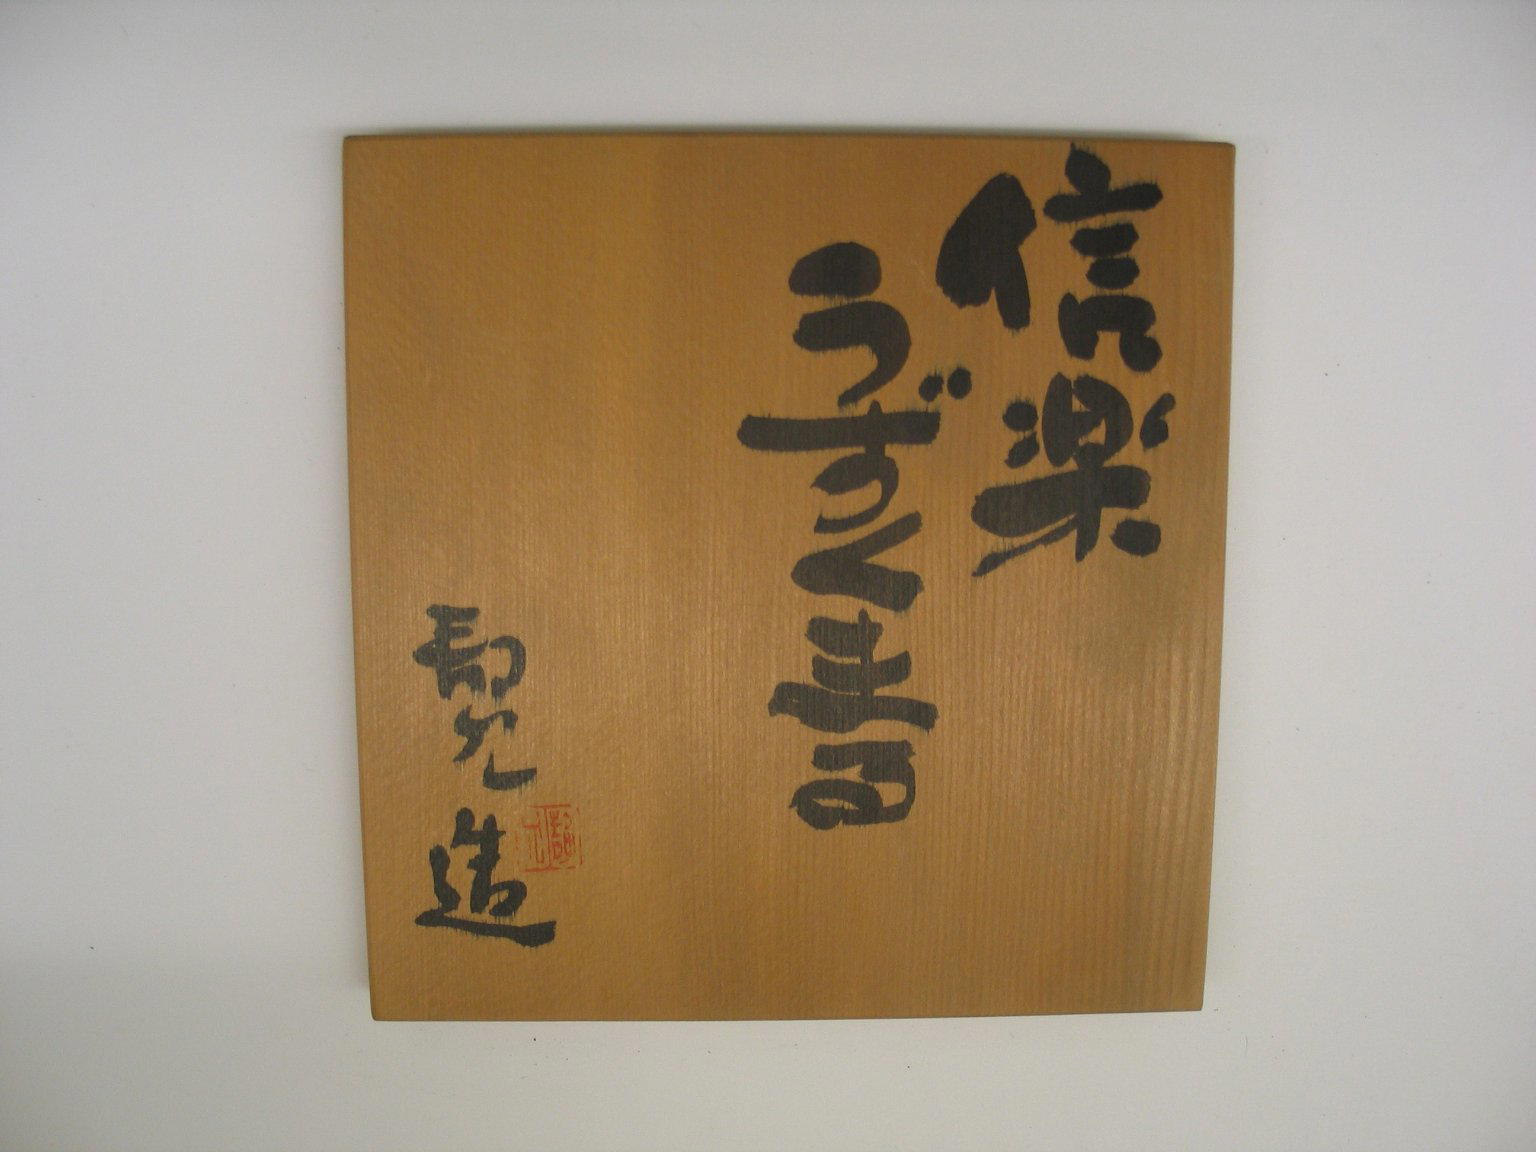 信楽
うずくまる
造